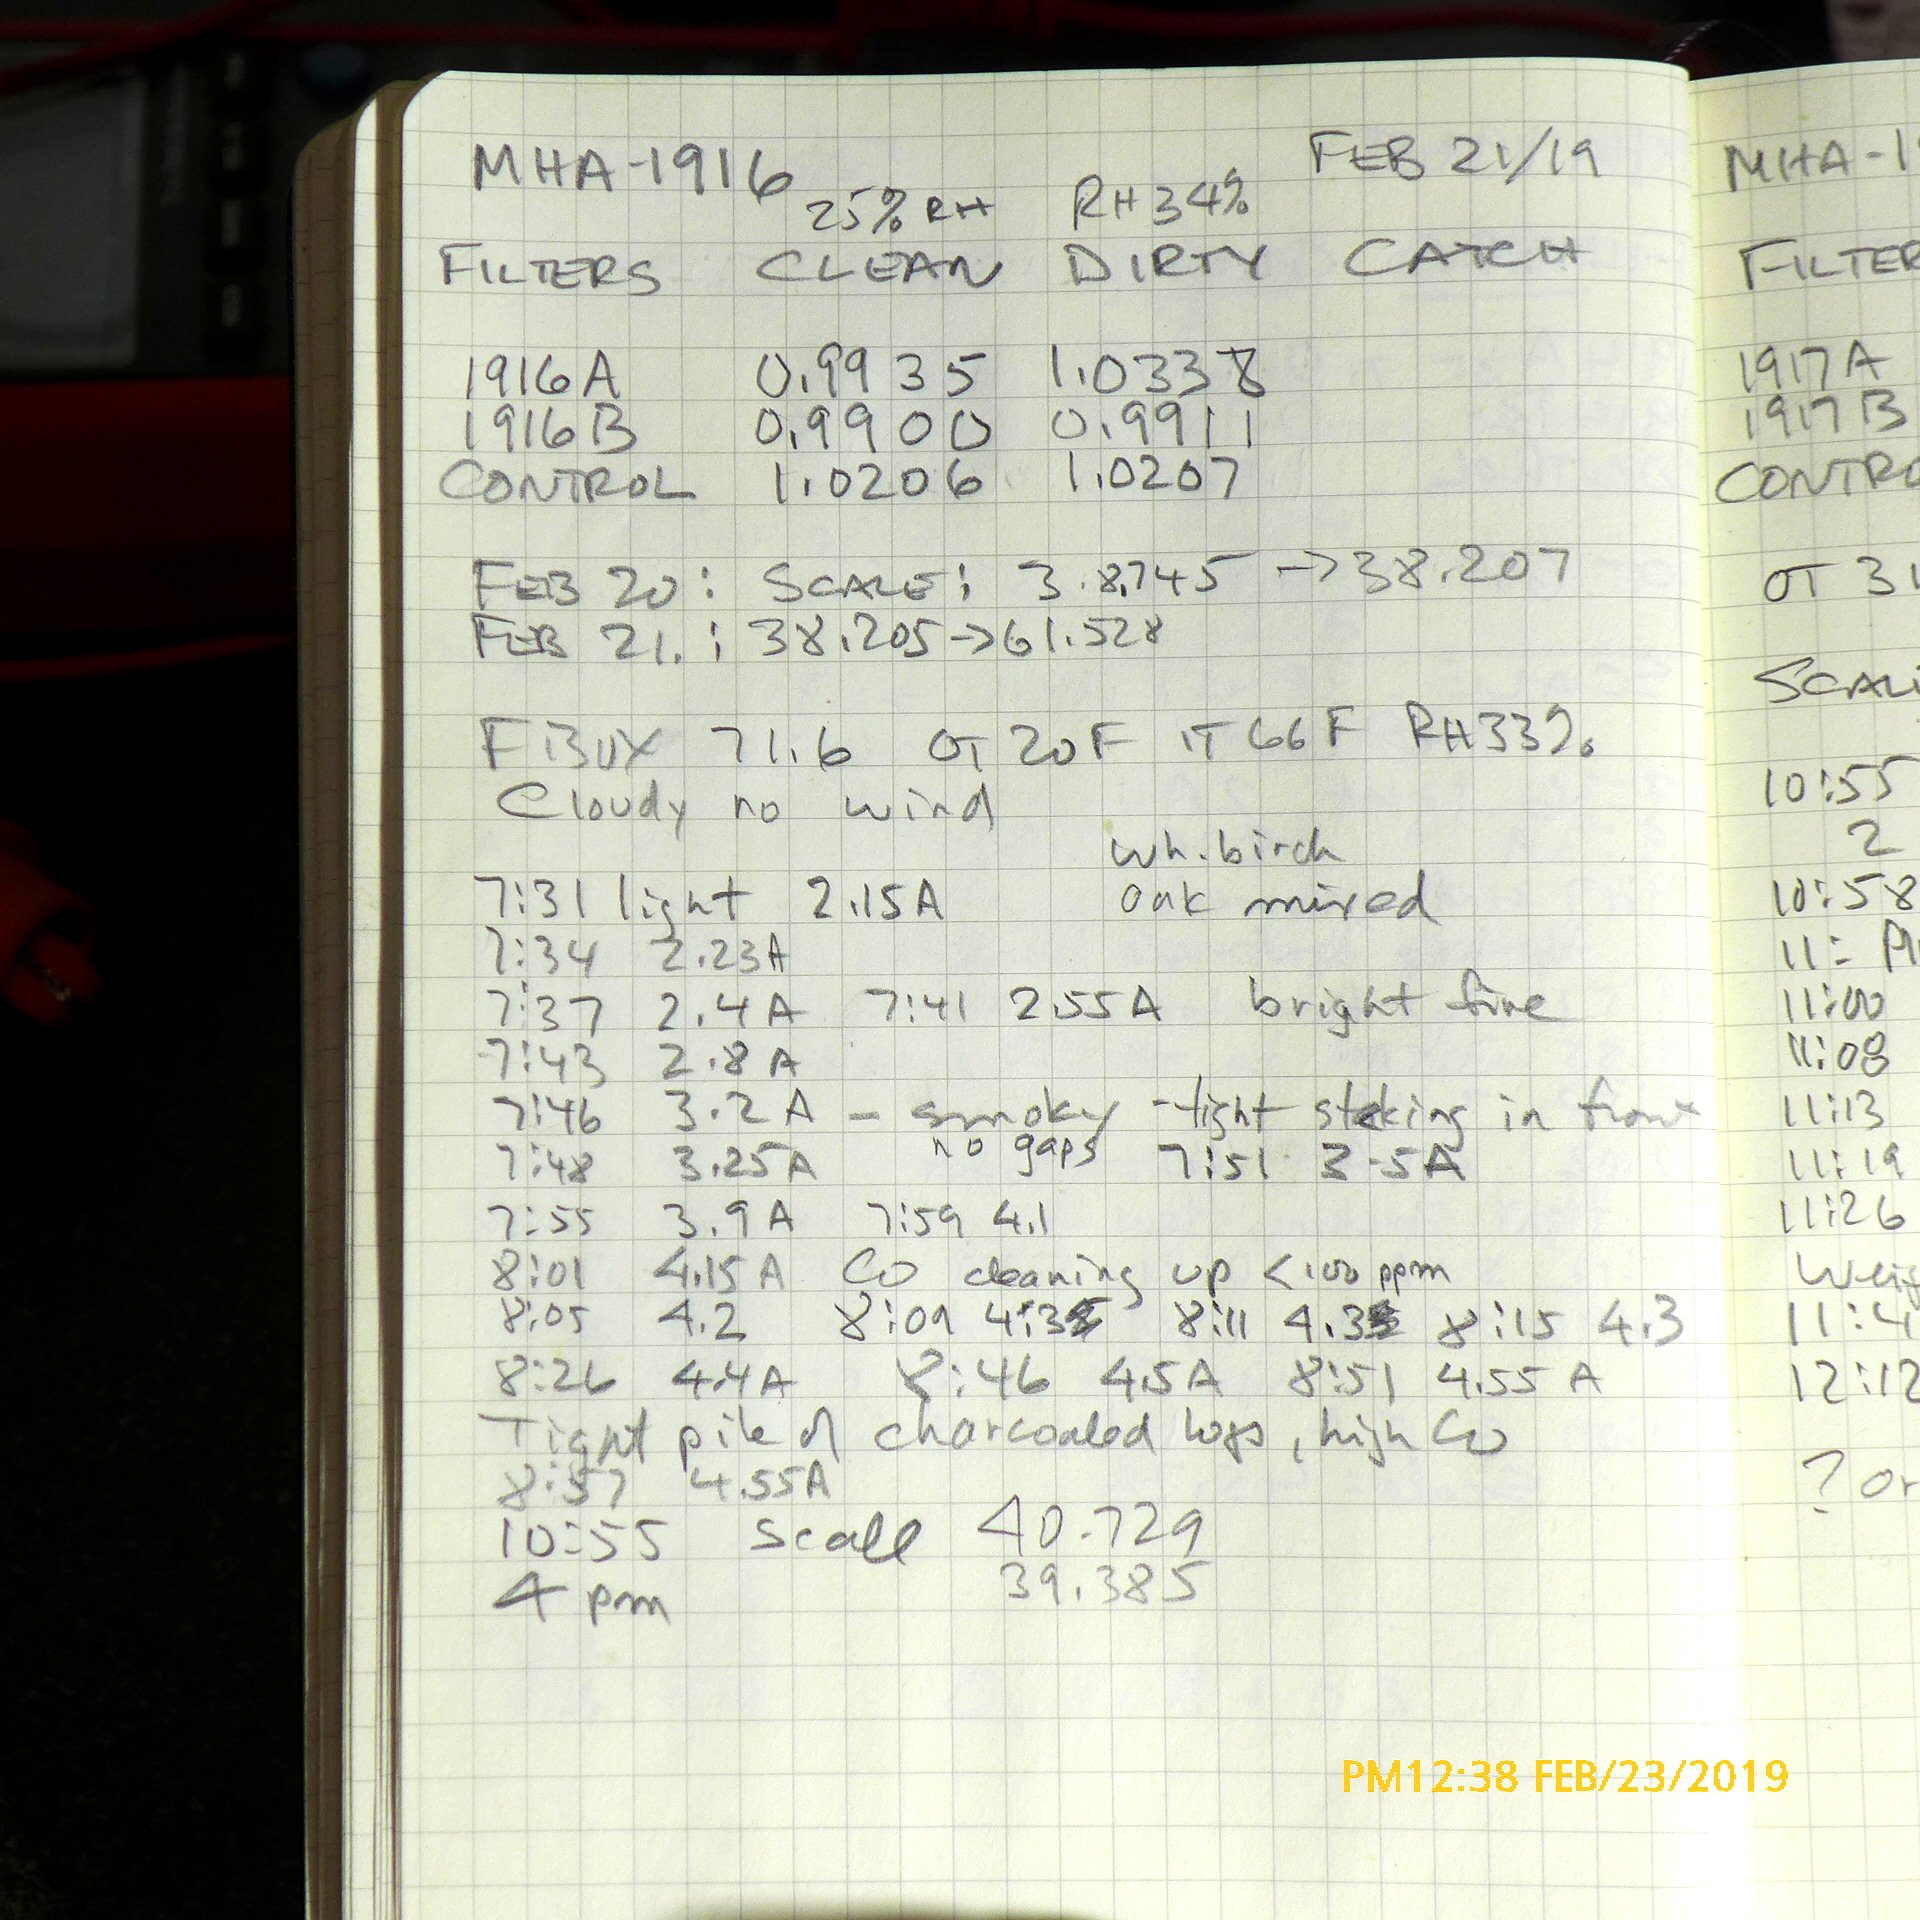 MHA-1916 FEB 21/19
25% RH RH 34%
FILTERS CLEAN DIRTY CATCH
1916A 0.9935 1.0338
1916B 0.9900 0.9911
CONTROL 1.0206 1.0207
FEB 20: SCALE: 38.745 → 38.207
FEB 21.: 38.205 → 61.528
F BOX 71.6 OT 20F IT 66F RH 33%
Cloudy no wind
wh. birch
7:31 light 2.15A oak mixed
7:34 2.23A
7:37 2.4A 7:41 2.55A bright fire
7:43 2.8A
7:46 3.2A - smoky - tight stacking in front
no gaps
7:48 3.25A 7:51 3.5A
7:55 3.9A 7:59 4.1
8:01 4.15A CO cleaning up <100 ppm
8:05 4.2 8:09 4.3 8:11 4.3 8:15 4.3
8:26 4.4A 8:46 4.5A 8:51 4.55A
Tight pile of charcoaled logs, high CO
8:57 4.55A
10:55 Scale 40.729
4 pm 39.385
MHA-1
FILTER
1917A
1917B
CONTRO
OT 31
SCAL
10:55
2
10:58
11:
11:00
11:08
11:13
11:19
11:26
Weig
11:4
12:12
? or
PM12:38 FEB/23/2019